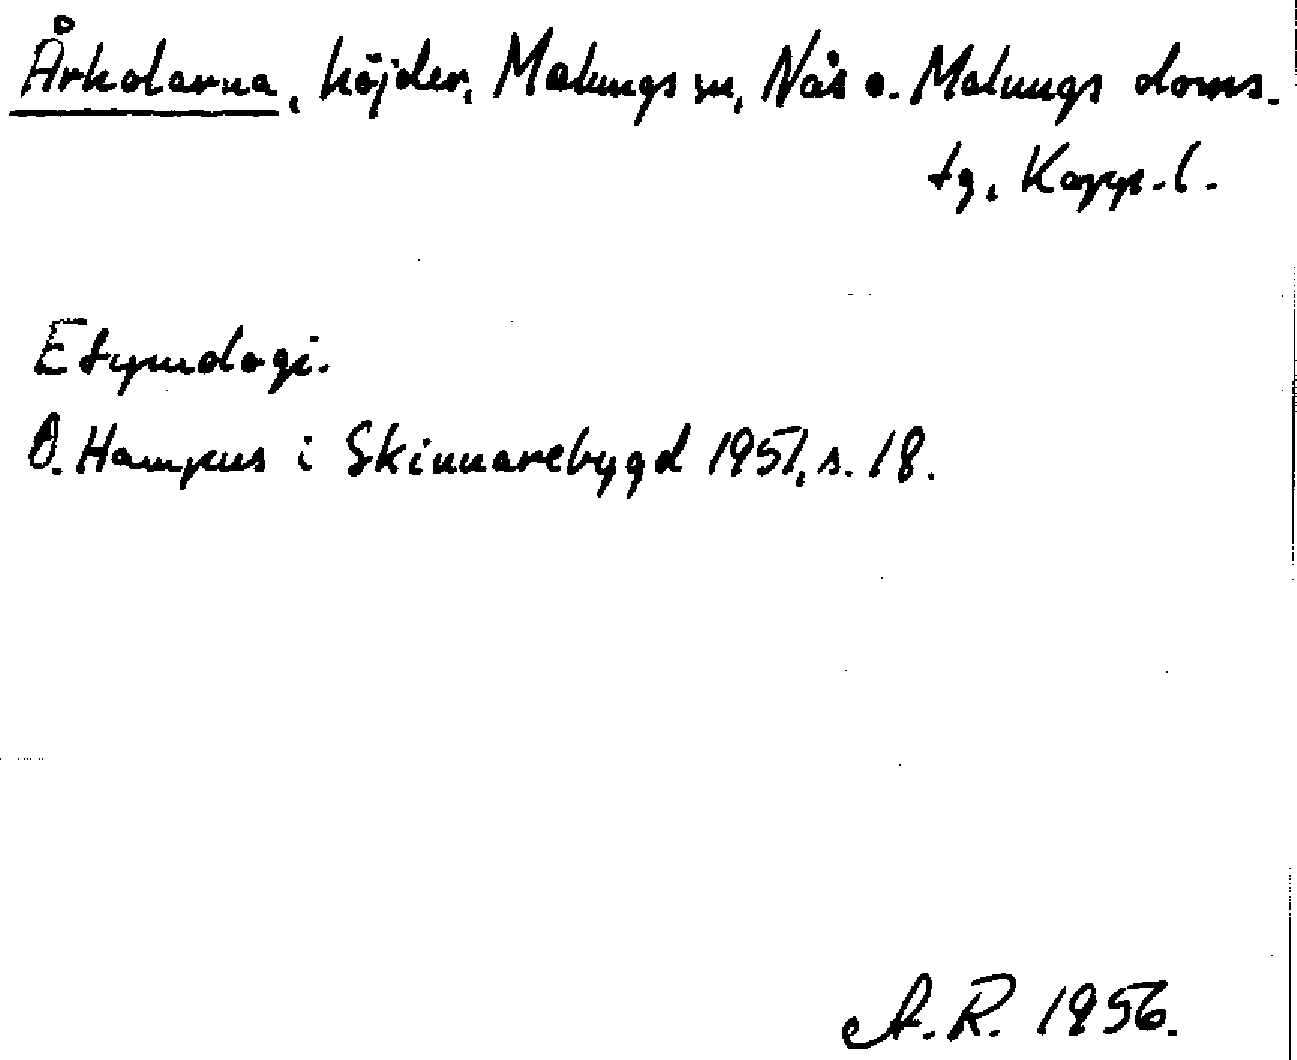 Årkolarna, höjder, Malungs sn, Nås o. Malungs doms.
tg, Kopp. l.
Etymologi.
O. Hampus i Skinnarebygd 1951, s. 18.
A. R. 1956.